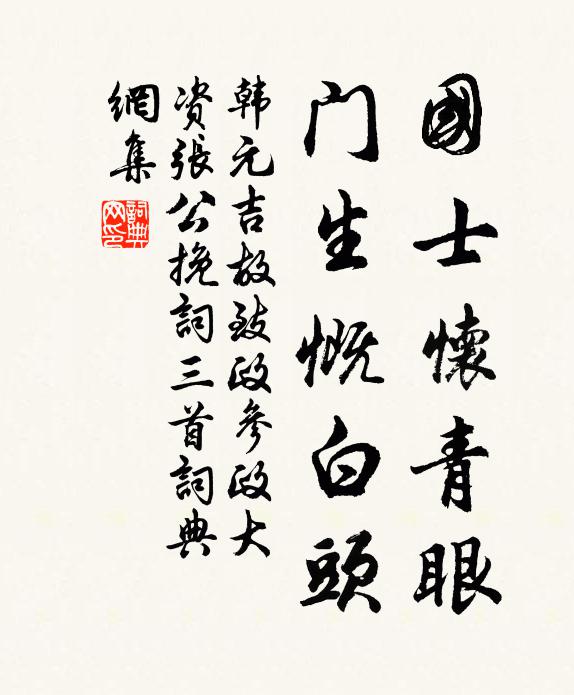 國士懷青眼
门生慨白頭
韩元吉故致政參政大
资張公挽詞三首詞典
網集
詞典網印